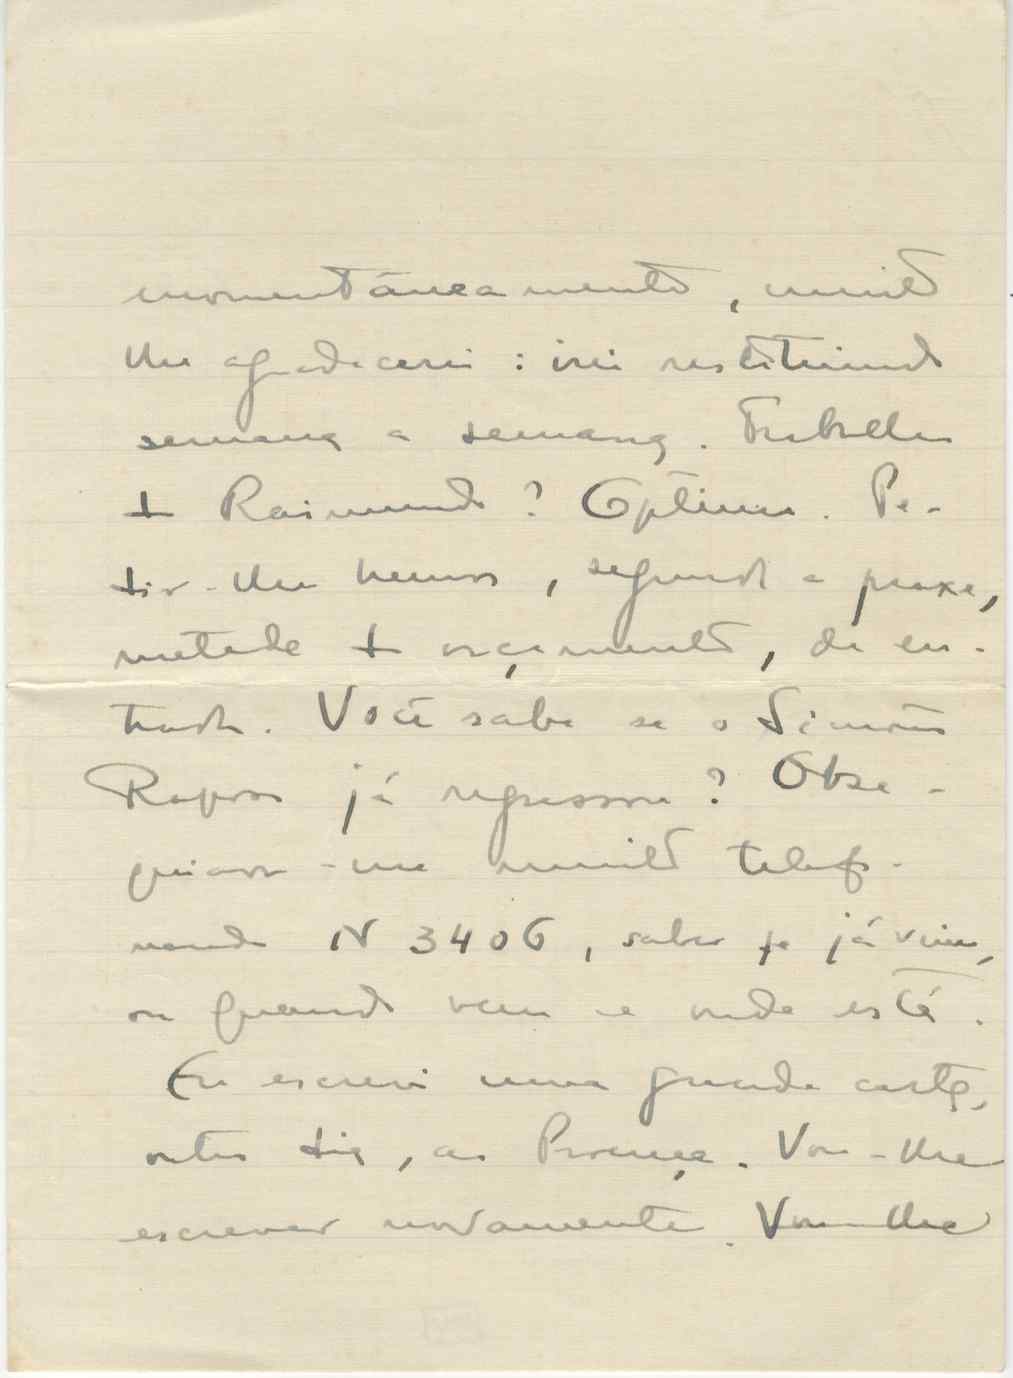 momentâneamente, muito
lhe agradecerei: irei restituindo
semana a semana. Trabalho
do Raimundo? Optimo. Pe-
dir-lhe hemos, segundo a praxe,
metade do orçamento, de en-
trada. Você sabe se o Simões
Raposo já regressou? Obse-
quiava-me muito telefo-
nando N 3406, saber se já veiu,
ou quando vem e onde está.
Eu escrevi uma grande carta,
outro dia, ao Proença. Vou-lhe
escrever novamente. Vou-lhe